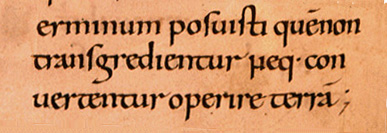 erminum posuisti quēnon
transgredientur neq· con
uertentur operire terrā;